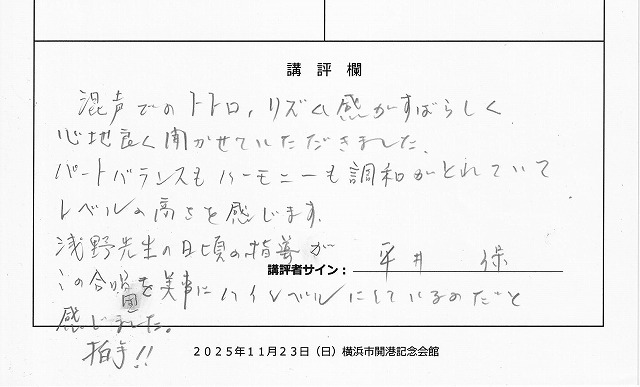 講評欄
混声でのトトロ、リズム感がすばらしく
心地良く聞かせていただきました。
パートバランスもハーモニーも調和がとれていて
レベルの高さを感じます。
浅野先生の日頃の指導が
講評者サイン： 平井 保
この合唱団を美事にハイレベルにしているのだと
感じました。
拍手!!
2025年11月23日（日）横浜市開港記念会館